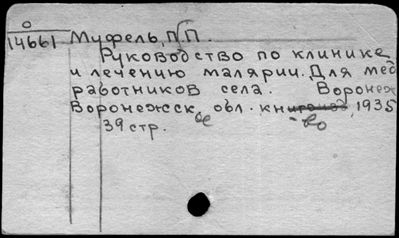 0
14661 Муфель, П П.
Руководство по клинике
и лечению малярии. Для мед
работников села. Воронеж
Воронежск. обл. кн 1935
39 стр. ое -во